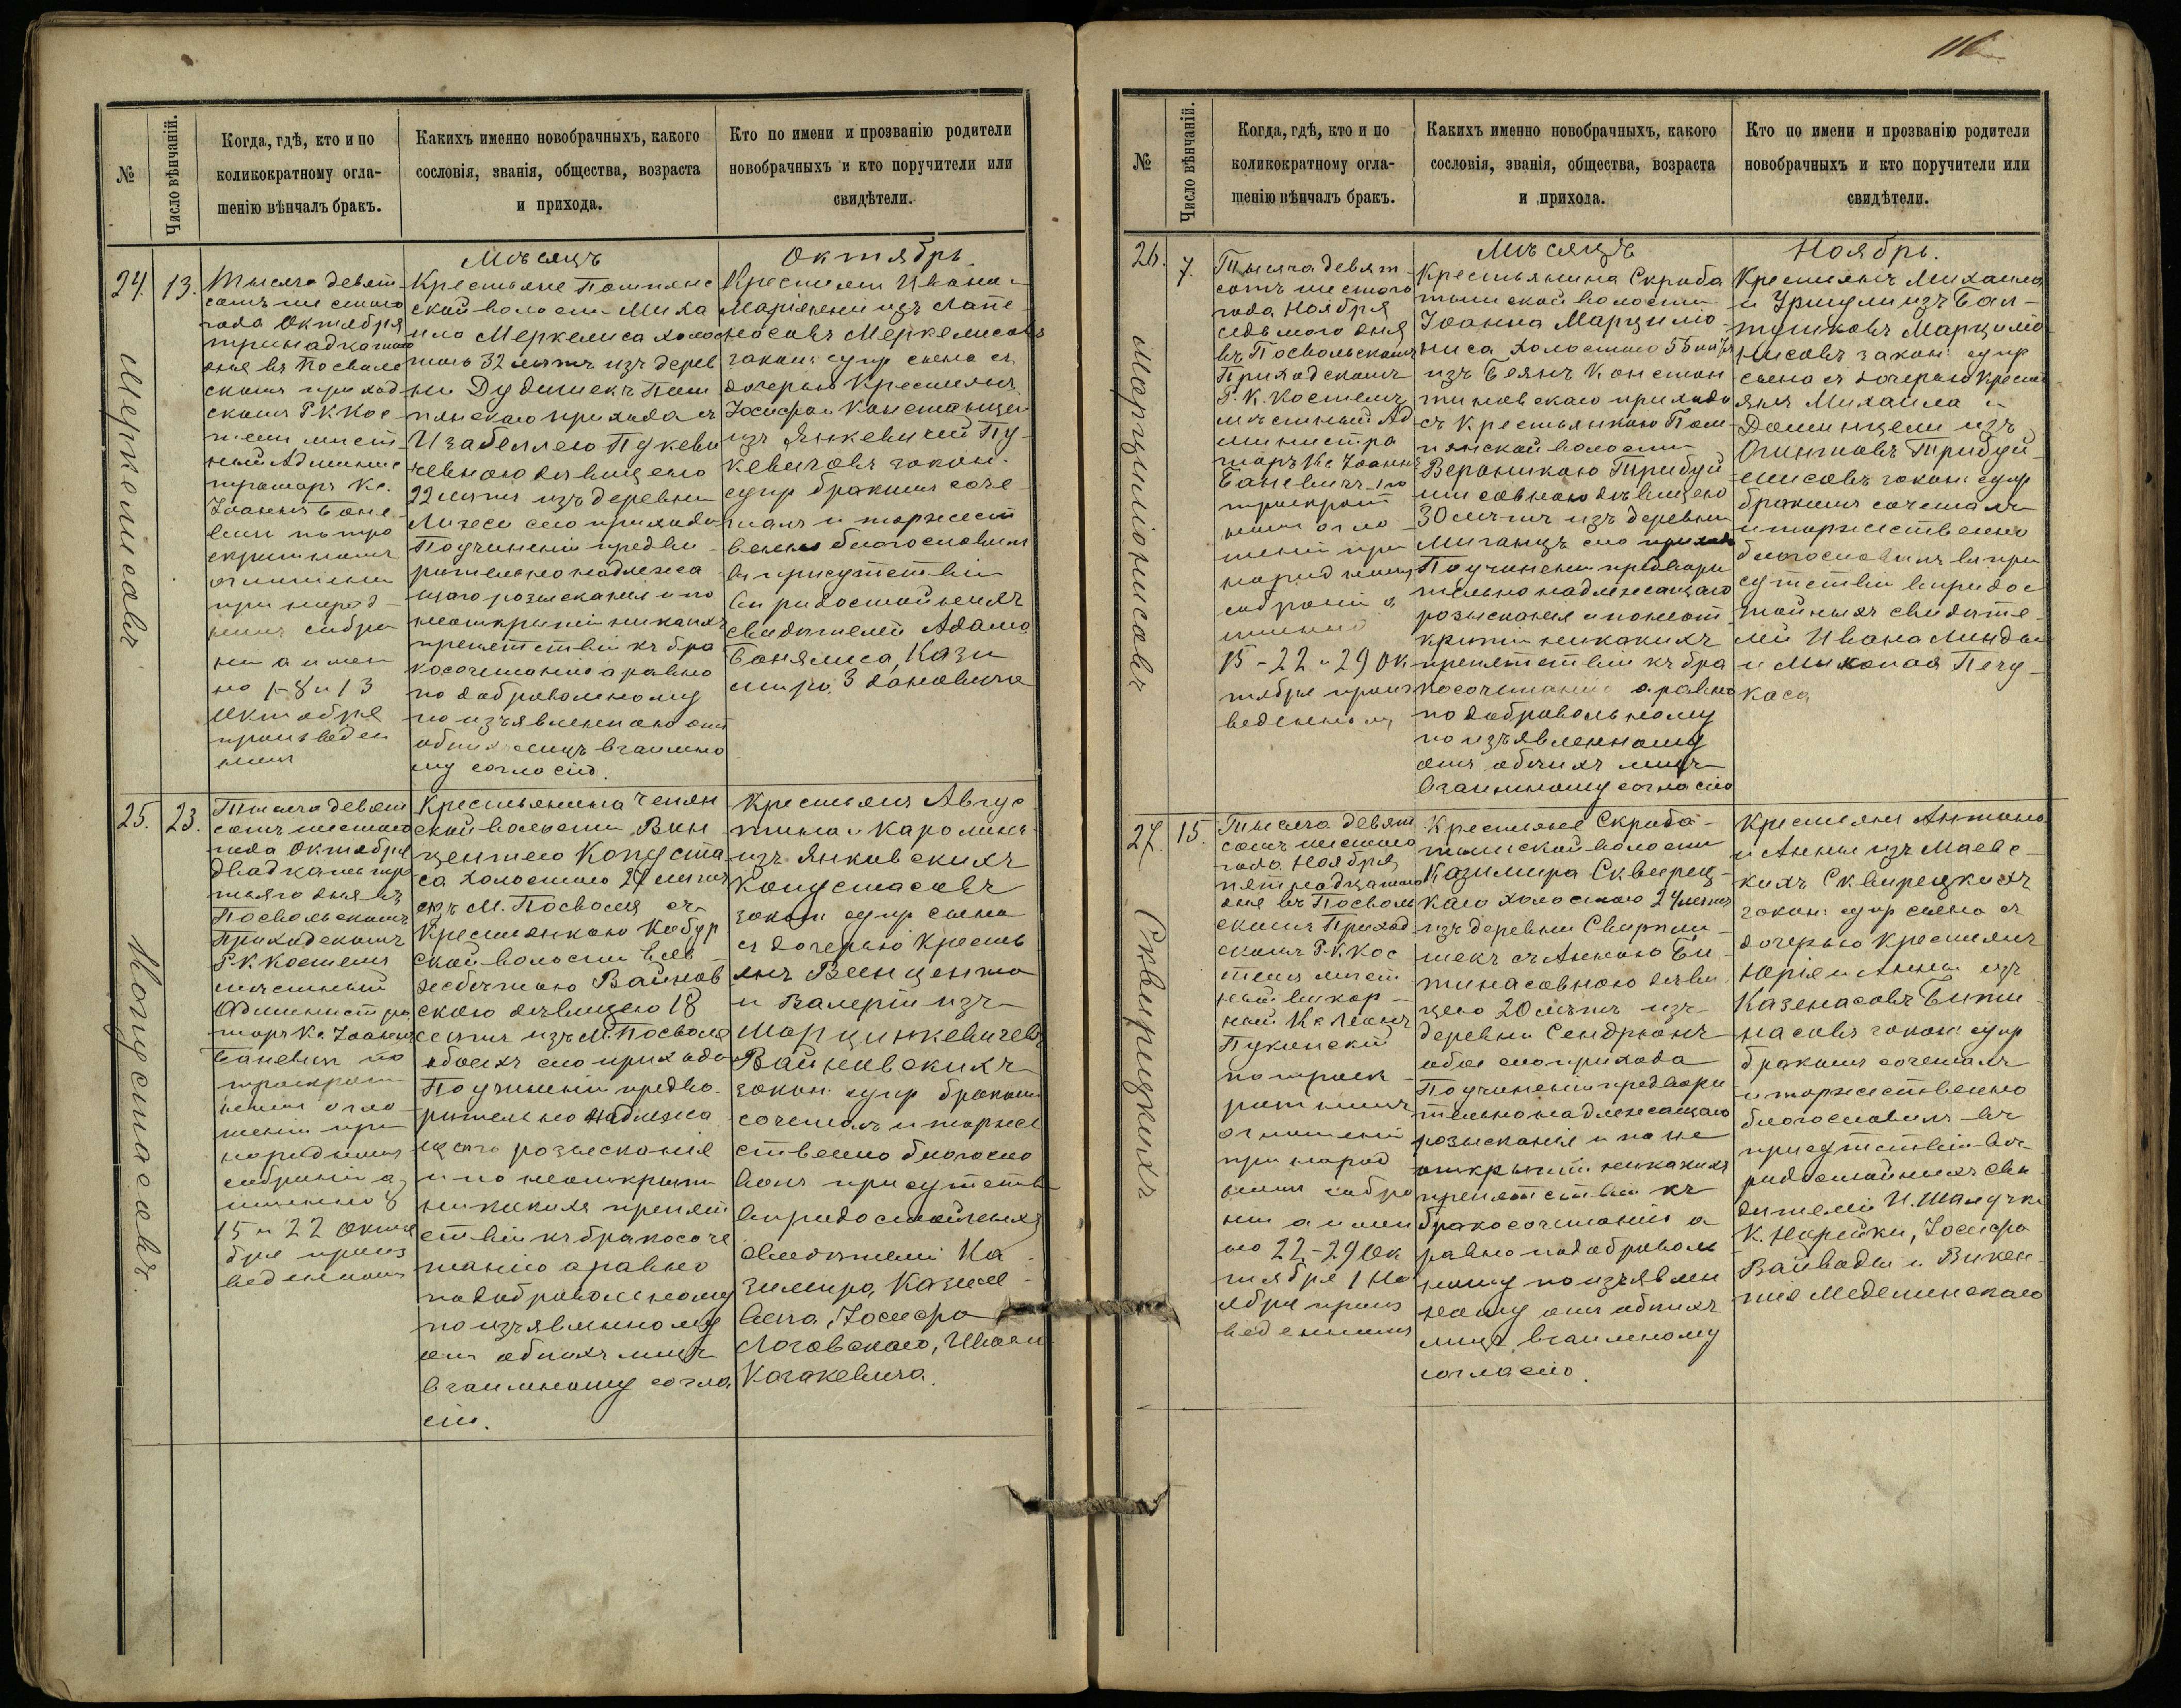 116
№
Число вѣнчаній.
Когда, гдѣ, кто и по
коликократному огла-
шенію вѣнчалъ бракъ.
Какихъ именно новобрачныхъ, какого
сословія, званія, общества, возраста
и прихода.
Кто по имени и прозванію родители
новобрачныхъ и кто поручители или
свидѣтели.
Мѣсяцъ
Октябрь.
24.
13.
Меркелисовъ
Тысяча девят
сотъ шестого
года Октября
тринадцатаго
дня въ Посволь
скомъ приход
скомъ Р. К. Кос
телѣ мѣст
ный Админис
траторъ Кс.
Іоаннъ Бане
вичъ по тро
екратномъ
оглашеніи
при народ
номъ собра
ніи а имен
но 1-8 и 13
Октября
произведен
номъ
Крестьяне Помпянс
кой волости Миха
ила Меркелиса холос
таго 32 лѣтъ изъ дерев
ни Дудишекъ Пом
пянскаго прихода съ
Изабеллею Пукеви
чевною дѣвицею
22 лѣтъ изъ деревни
сего прихода
По учиненіи предва
рительно надлежа
щаго розысканія и по
неоткрытіи никакихъ
препятствій къ бра
косочетанію а равно
по добровольному
по изъявленному отъ
обоихъ лицъ взаимно
му согласію.
Крестьян Ивана и
Маріянны изъ Лапе
носовъ Меркелисовъ
закон: супр сына съ
дочерью Крестьянъ
Іосифа и Констанціи
изъ Янкевичей Пу
кевичовъ закон.
супр бракомъ соче
талъ и торжест
венно благословилъ
въ присутствіи
вѣридостойныхъ
свидѣтелей Адама
Бонялиса, Кази
мира Здановича
25.
23.
Копустасовъ.
Тысяча девят
сотъ шестого
года Октября
двадцать тре
тьяго дня въ
Посвольскомъ
Приходскомъ
Р. К. Костелѣ
мѣстный
Администра
торъ Кс. Іоаннъ
Баневичъ по
троекрат
номъ огла
шеніи при
народномъ
собраніи а
именно 8
15 и 22 Октя
бря произ
веденномъ
Крестьянина
ской волости Вин
центаго Копуста
са холостого 27 лѣтъ
изъ М. Посволя съ
Крестьянкою
ской волости
Вайнов
скою дѣвицею 18
лѣтъ изъ М. Посволя
обоихъ сего прихода
По учиненіи предва
рительно надлежа
щаго розысканія
и по неоткрытіи
никакихъ препят
ствій къ бракосоче
танію а равно
по добровольному
по изъявленному
отъ обоихъ лицъ
взаимному согла
сію.
Крестьянъ Авгус
тина и Каролины
изъ Янковскихъ
Копустасовъ
закон супр сына
съ дочерью Кресть
янъ Винцента
и Валеріи изъ
Марцинкевичевъ
Вайновскихъ
закон супр бракомъ
сочеталъ и торже
ственно благосло
вилъ присутств
вѣридостойныхъ
свидѣтелей Ка
зимира
Іосифа
Логовскаго, Ивана
Казакевича.
№
Число вѣнчаній.
Когда, гдѣ, кто и по
коликократному огла-
шенію вѣнчалъ бракъ.
Какихъ именно новобрачныхъ, какого
сословія, званія, общества, возраста
и прихода.
Кто по имени и прозванію родители
новобрачныхъ и кто поручители или
свидѣтели.
Мѣсяцъ
Ноябрь.
26.
7.
Марциліонисовъ
Тысяча девят
сотъ шестого
года Ноября
седьмого дня
въ Посвольскомъ
Приходскомъ
Р. К. Костелѣ
мѣстный Ад
министра
торъ Кс. Іоаннъ
Баневичъ по
троекрат
номъ огла
шеніи при
народномъ
собраніи а
именно
15-22 и 29 Ок
тября произ
веденномъ
Крестьянина Скроба
тышской волости
Іоанна Марциліо
ниса холостого 55 лѣтъ
изъ Беянъ Констан
тиновскаго прихода
съ Крестьянкою Пом
пянской волости
Вероникою Трибуй
шисовною дѣвицею
30 лѣтъ изъ деревни
Миганцъ сего прихода
По учиненіи предвари
тельно надлежащаго
розысканія и по неот
крытіи никакихъ
препятствій къ бра
косочетанію а равно
по добровольному
по изъявленному
отъ обоихъ лицъ
взаимному согласію
Крестьянъ Михаила
и Уршули изъ Бал
тушковъ Марциліо
нисовъ закон: супр
сына съ дочерью Кресть
янъ Михаила и
Доминицели изъ
Огинтовъ Трибуй
шисовъ закон: супр
бракомъ сочеталъ
и торжественно
благословилъ въ при
сутствіи вѣридос
тойныхъ свидѣте
лей Ивана Линды
и Миколая Печу
коса
27.
15.
Сквирецкихъ
Тысяча девят
сотъ шестого
года Ноября
пятнадцатаго
дня въ Посволь
скомъ Приход
скомъ Р. К. Кос
телѣ мѣст
ный викар
ный Кс. Леонъ
Пукинскій
по троек
ратномъ
оглашеніи
при народ
номъ собра
ніи а имен
но 22-29 Ок
тября 1 Но
ября произ
веденномъ
Крестьяне Скроба
тышской волости
Казимира Сквирец
каго холостого 24 лѣтъ
изъ деревни Свирпли
шекъ съ Анною Би
тинасовною дѣви
цею 20 лѣтъ изъ
деревни Сендрюнъ
обое сего прихода
По учиненіи предвари
тельно надлежащаго
розысканія и по не
открытіи никакихъ
препятствій къ
бракосочетанію а
равно по доброволь
ному по изъявлен
ному отъ обоихъ
лицъ взаимному
согласію.
Крестьянъ Антона
и Анны изъ Маевс
кихъ Сквирецкихъ
закон: супр сына съ
дочерью Крестьянъ
Юрія и Анны изъ
Казенасовъ Бити
насовъ закон супр
бракомъ сочеталъ
и торжественно
благословилъ въ
присутствіи вѣ
ридостойныхъ сви
дѣтелей И.
К. Норейки, Іосифа
Вайводы и Викен
тія Медешинскаго